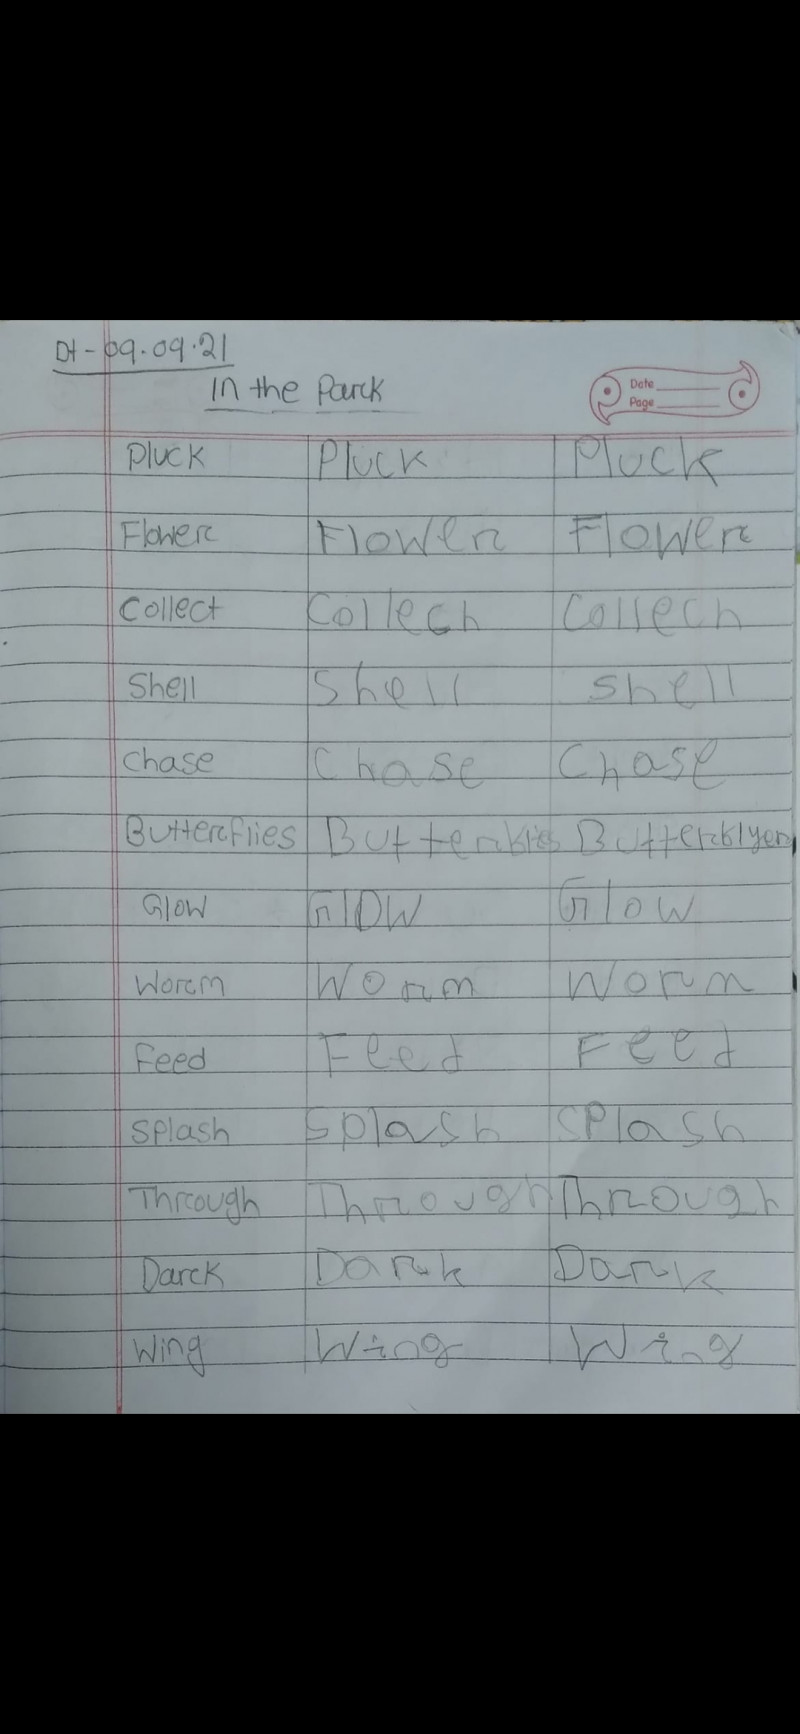 Dt - 09.09.21
In the Park
Date
Page
Pluck Pluck Pluck
Flower Flower Flower
Collect Collech Collech
Shell Shell Shell
Chase Chase Chase
Butterflies Butterkies Butterklyer
Glow Glow Glow
Worm Worm Worm
Feed Feed Feed
Splash Splash Splash
Through Through Through
Dark Dark Dark
Wing Wing Wing